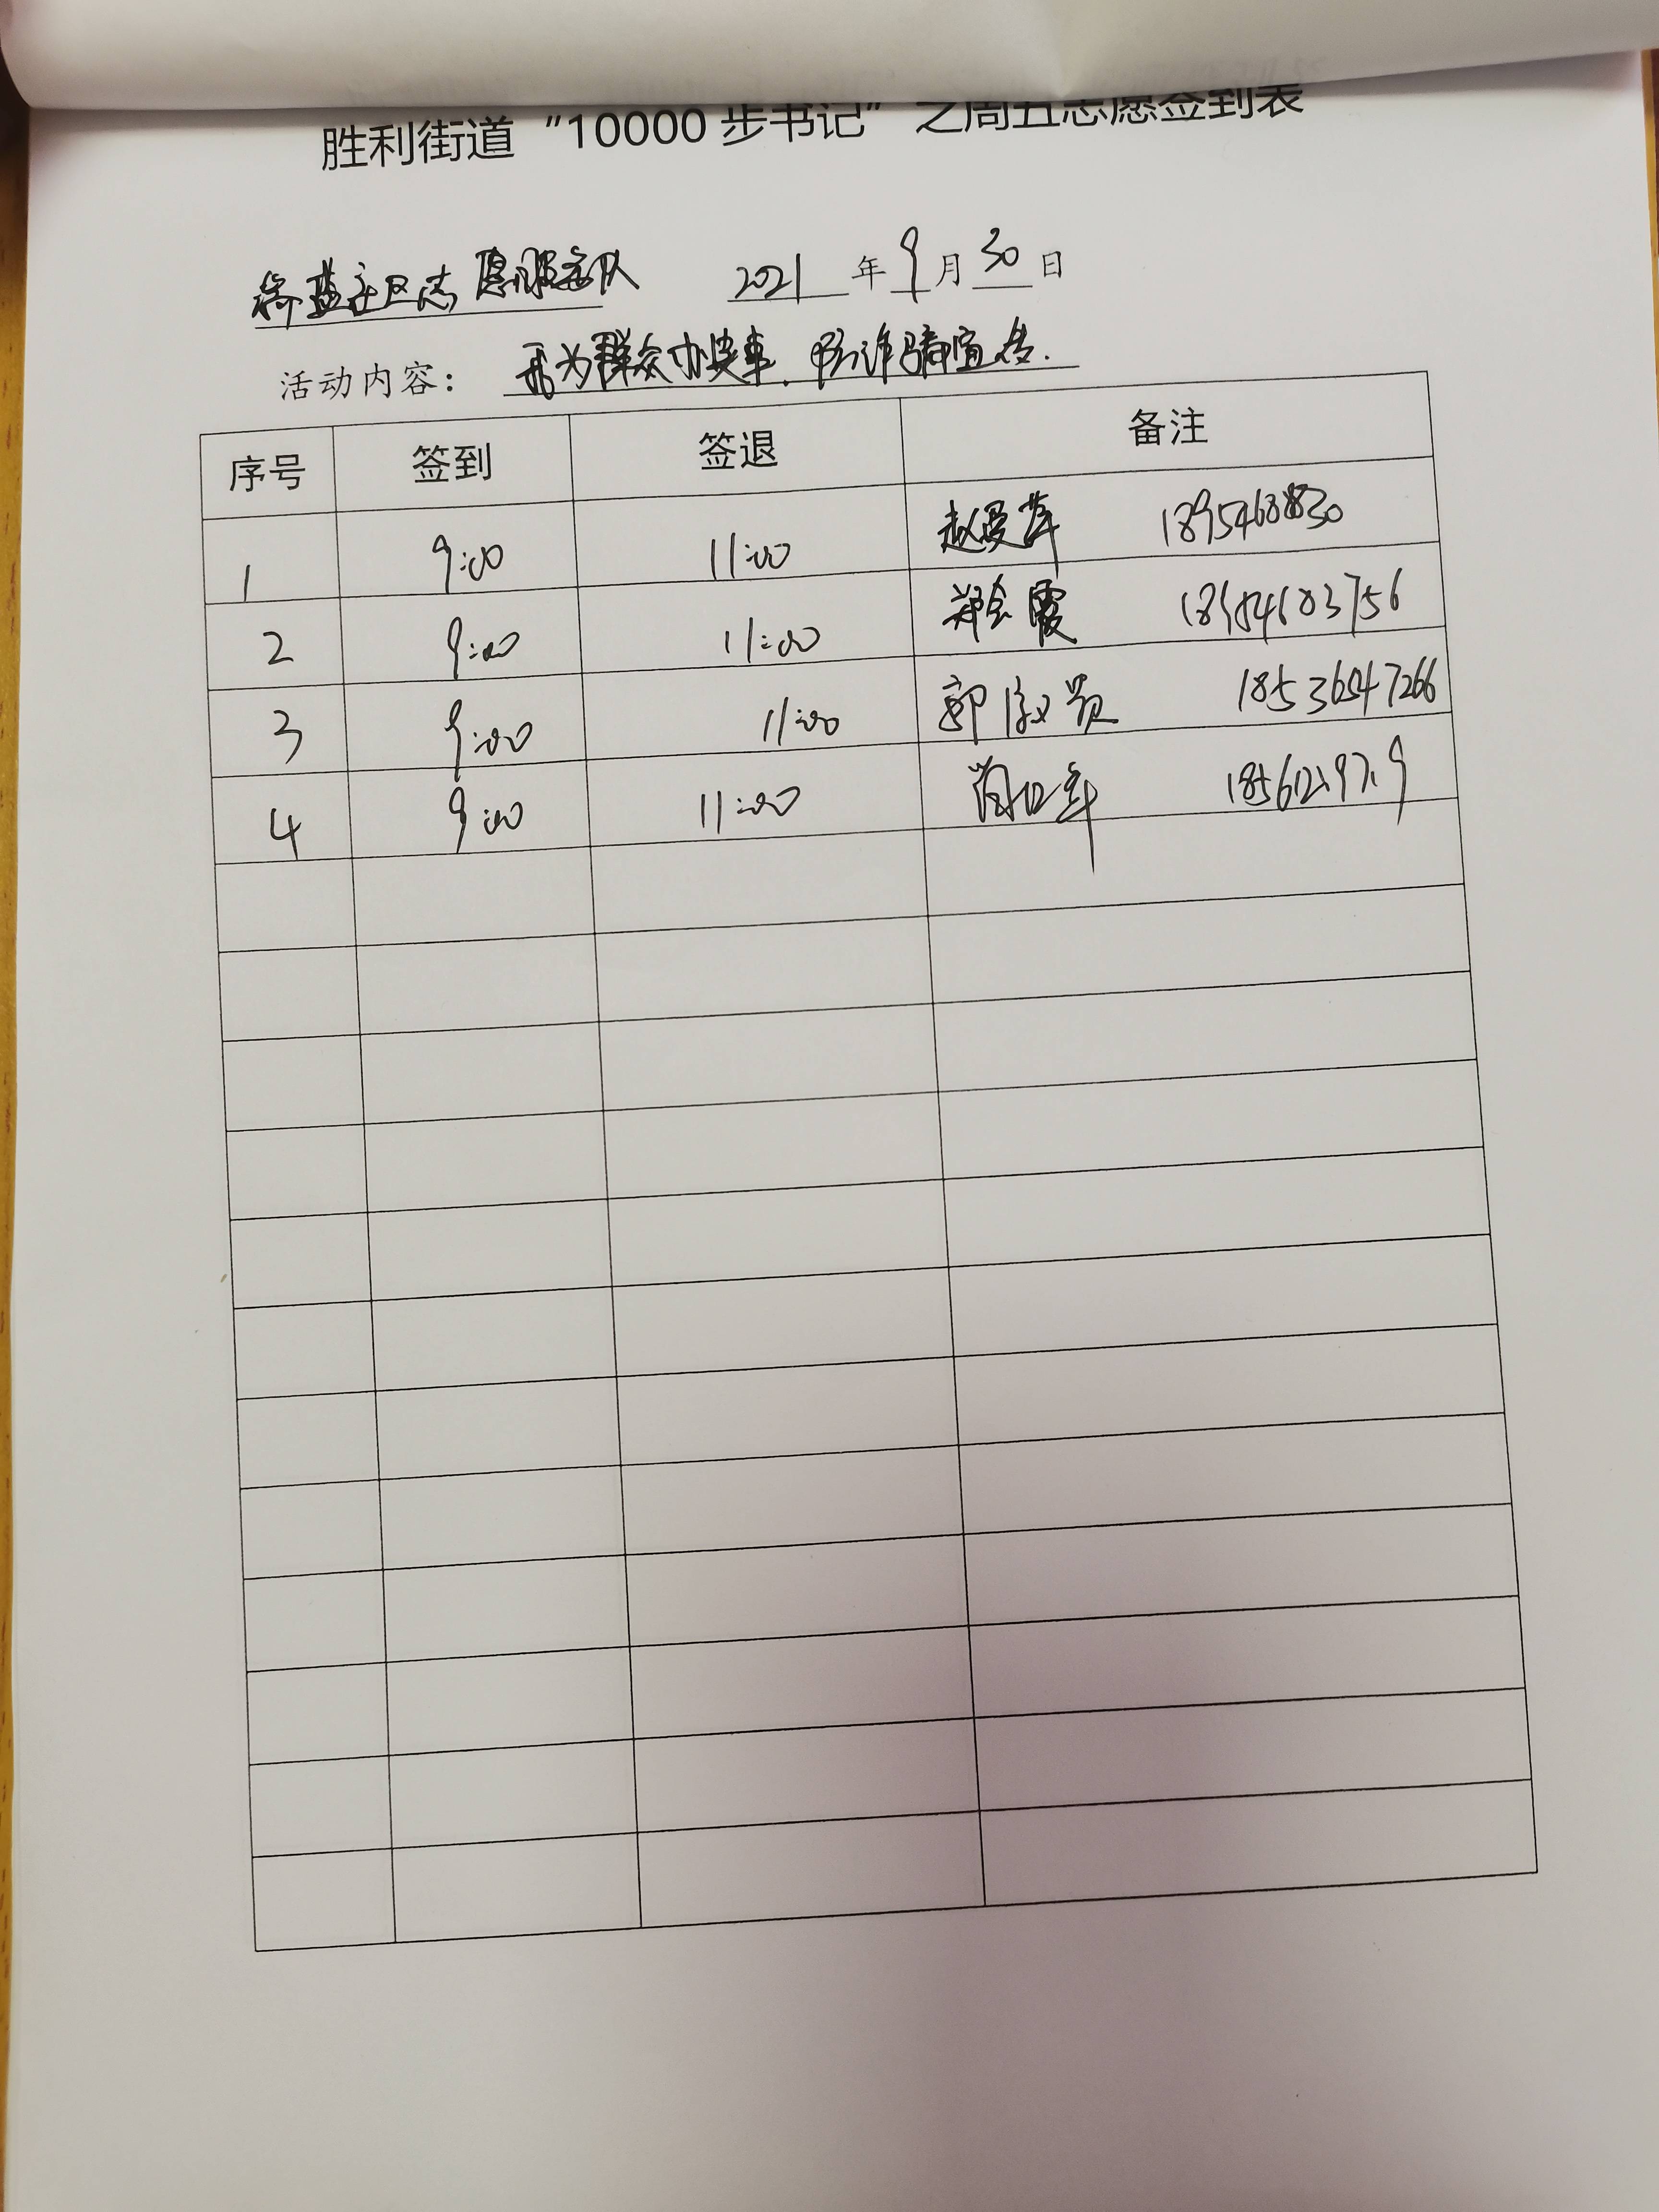 胜利街道“10000步书记”之周五志愿签到表
社区志愿服务队 2021年9月30日
活动内容： 我为群众办实事、防诈骗宣传.
序号 签到 签退 备注
1 9:00 11:00 赵曼萍
2 9:00 11:00 郑会霞 18954683756
3 9:00 11:00 郭 18536547266
4 9:00 11:00